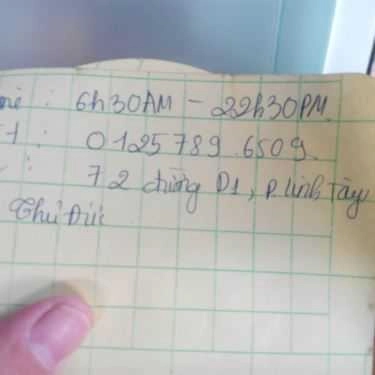 : 6h30AM - 22h30PM
: 0125789 6509
: 72 đường D1, P. Linh Tây
Thủ Đức